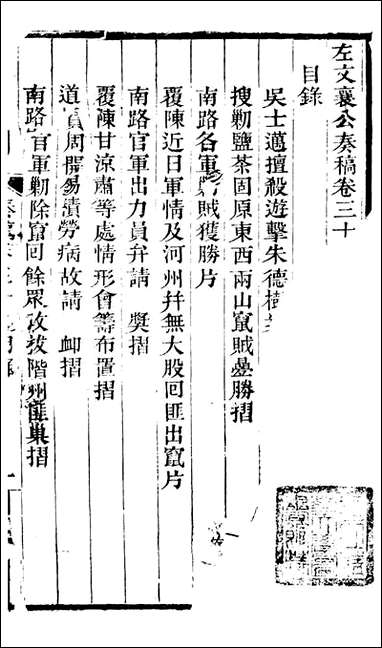 左文襄公奏稿卷三十
目錄
吳士邁擅殺遊擊朱德樹
搜勦鹽茶固原東西兩山竄賊疊勝摺
南路各軍賊獲勝片
覆陳近日軍情及河州并無大股回匪出竄片
南路官軍出力員弁請 獎摺
覆陳甘涼肅等處情形會籌布置摺
道員周開錫積勞病故請 卹摺
南路官軍勦除竄回餘眾攻拔階州匪巢摺